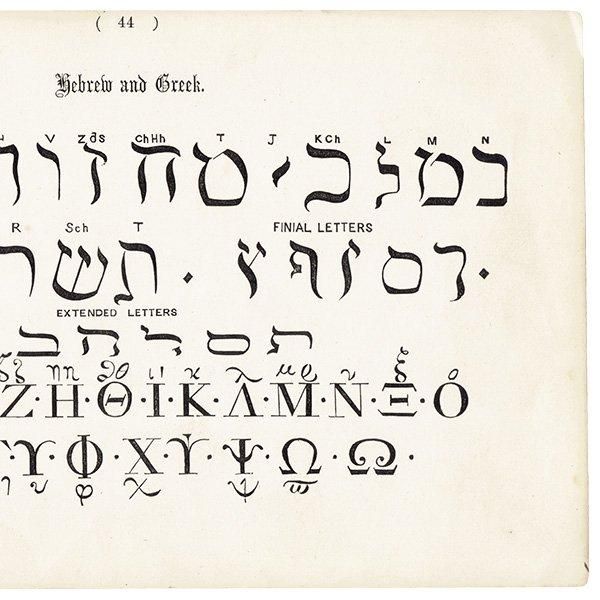 ( 44 )
Hebrew and Greek.
V ZdS ChHh T J KCh L M N
ו ז ח ט י כ ל מ נ
R Sch T FINIAL LETTERS
ר ש ת · ץ ף ן ם ך ·
EXTENDED LETTERS
ב ה ל ם ת
ζ ηη ϑθ ιι κ λ μ ν ξ ο
Ζ·Η·Θ·Ι·Κ·Λ·Μ·Ν·Ξ·Ο
ϒ·Φ·Χ·ϒ·Ψ·Ω·Ω·
υ φ χ ψ ϖ